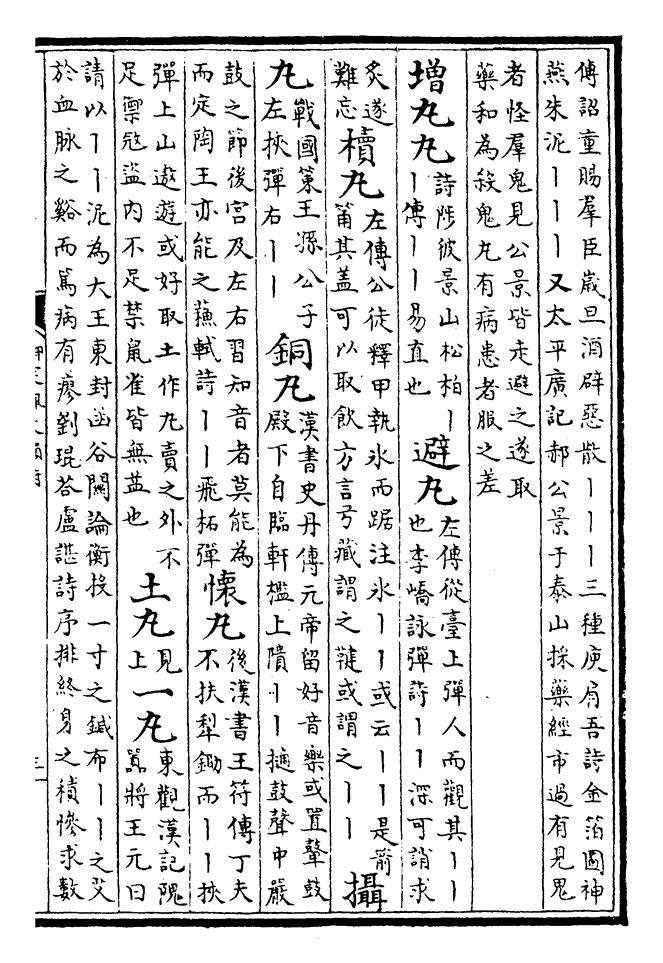 傅詔童賜羣臣歲旦酒辟惡散丨丨丨三種庾肩吾詩金箔圖神
燕朱泥丨丨丨又太平廣記郝公景于泰山採藥經市過有見鬼
者怪羣鬼見公景皆走避之遂取
藥和為殺鬼丸有病患者服之差
增丸丸
詩陟彼景山松柏丨
丨傳丨丨易直也
避丸
左傳從臺上彈人而觀其丨丨
也李嶠詠彈詩丨丨深可誚求
炙遂
難忘
櫝丸
左傳公徒釋甲執氷而踞注氷丨丨或云丨丨是箭
筩其盖可以取飲方言弓藏謂之鞬或謂之丨丨
攝
丸
戰國策王孫公子
左挾彈右丨丨
銅丸
漢書史丹傳元帝留好音樂或置鼙鼓
殿下自臨軒檻上隤丨丨擿鼓聲中嚴
鼓之節後宮及左右習知音者莫能為
而定陶王亦能之蘓軾詩丨丨飛柘彈
懷丸
後漢書王符傳丁夫
不扶犁鋤而丨丨挾
彈上山遨遊或好取土作丸賣之外不
足禦寇盗内不足禁鼠雀皆無益也
土丸
見
上
一丸
東觀漢記隗
囂將王元曰
請以丨丨泥為大王東封函谷闗論衡投一寸之鍼布丨丨之艾
於血脉之谿而篤病有瘳劉琨荅盧諶詩序排終身之積慘求數